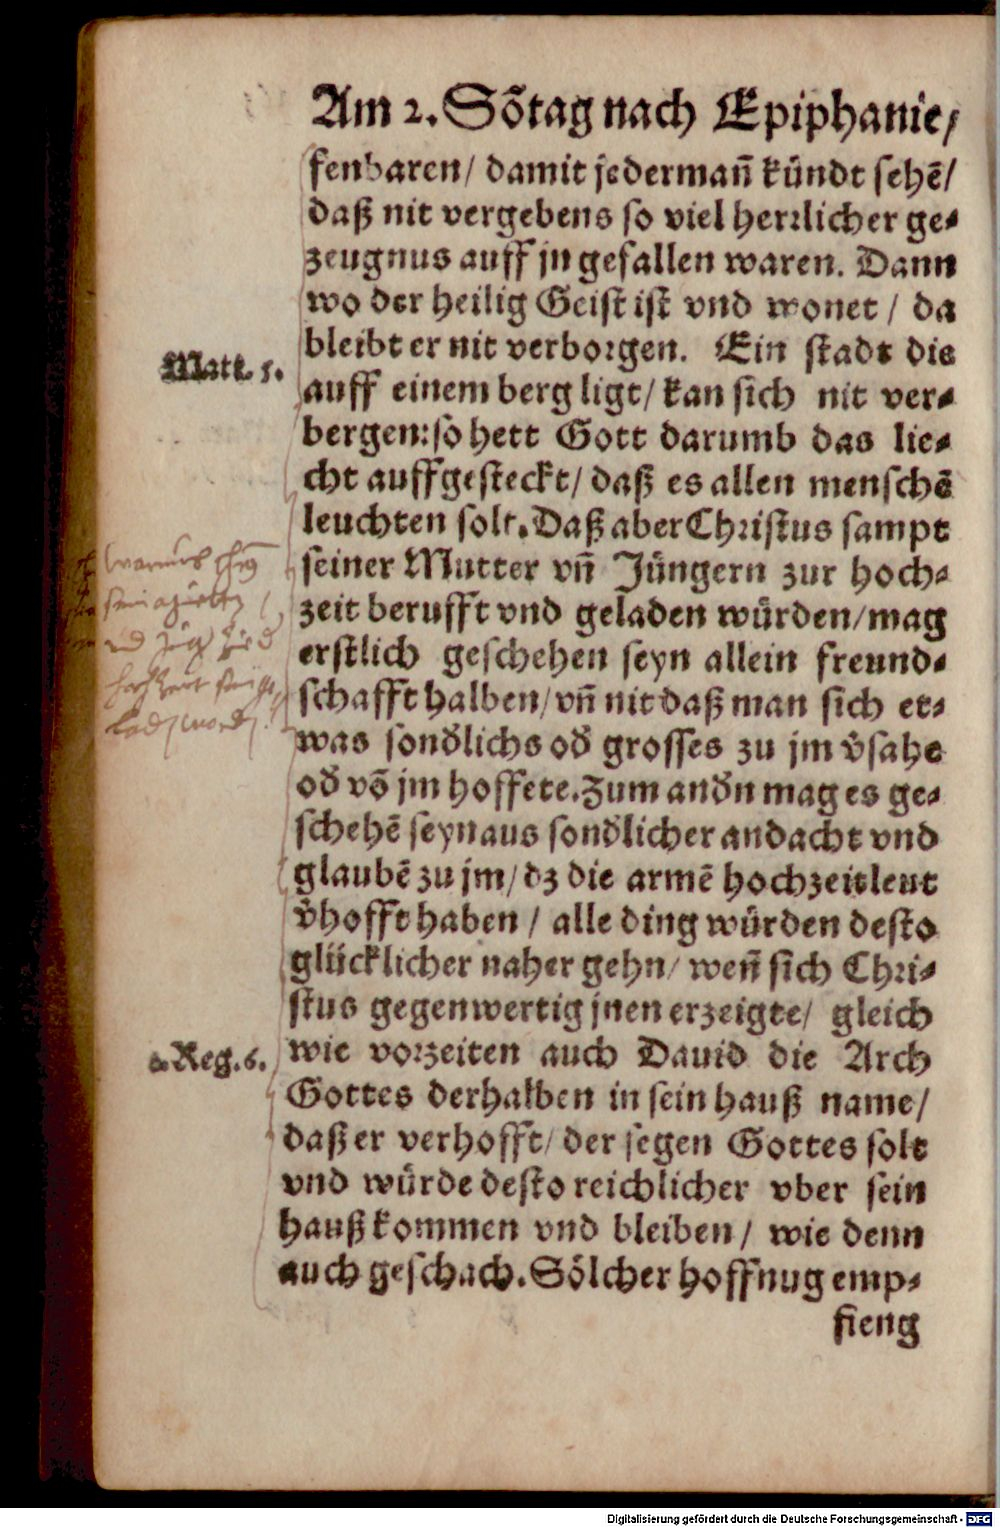 Am 2. Sõtag nach Epiphanie/
fenbaren/ damit jedermañ kündt sehẽ/
daß nit vergebens so viel herrlicher ge⸗
zeugnus auff jn gefallen waren. Dann
wo der heilig Geist ist vnd wonet / da
bleibt er nit verborgen. Ein stadt die
Matt. 5.
auff einem berg ligt/ kan sich nit ver⸗
bergen: so hett Gott darumb das lie⸗
cht auffgesteckt/ daß es allen menschẽ
leuchten solt. Daß aber Christus sampt
seiner Mutter vñ Jüngern zur hoch⸗
zeit berufft vnd geladen würden/ mag
erstlich geschehen seyn allein freund⸗
schafft halben/ vñ nit daß man sich et⸗
was sondlichs od grosses zu jm v̈sahe
od võ jm hoffete. Zum andn mag es ge⸗
schehẽ seyn aus sondlicher andacht vnd
glaubẽ zu jm/ dz die armẽ hochzeitleut
v̈hofft haben / alle ding würden desto
glücklicher naher gehn/ weñ sich Chri⸗
stus gegenwertig jnen erzeigte/ gleich
2. Reg. 6.
wie vorzeiten auch Dauid die Arch
Gottes derhalben in sein hauß name/
daß er verhofft/ der segen Gottes solt
vnd würde desto reichlicher vber sein
hauß kommen vnd bleiben / wie denn
auch geschach. Sölcher hoffnug emp⸗
fieng
Digitalisierung gefördert durch die Deutsche Forschungsgemeinschaft - DFG